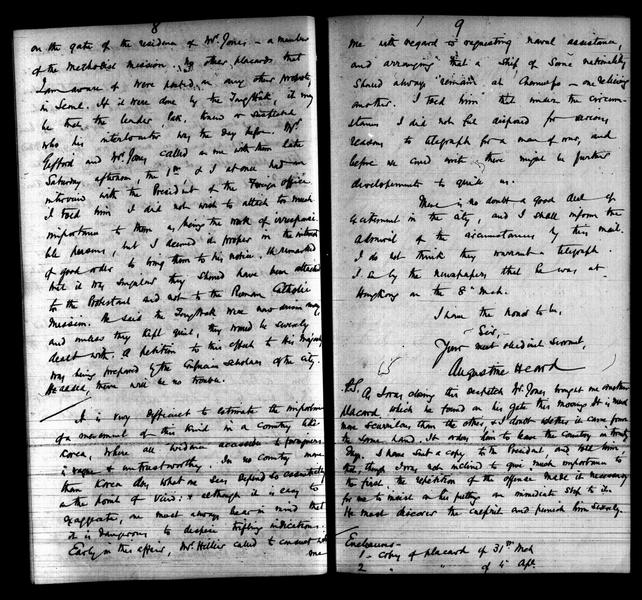 8
on the gate of the residence of Mr. Jones - a member
of the Methodist Mission. No other placards that
I am aware of were posted on any other property
in Seoul. If it were done by the Tong Hak, it may
be that the leader
who his interlocutor was the day before. Mr.
Gifford and Mr. Jones called on me with them late
Saturday afternoon, the 1st, & I at once had an
interview with the President of the Foreign Office.
I told him I did not wish to attach too much
importance to them as being the work of irresponsi-
ble persons, but I deemed it proper in the interest
of good order to bring them to his notice. He remarked
that it was singular they should have been attached
to the Protestant and not to the Roman Catholic
Mission. He said the Tong Hak were now
and unless they kept quiet, they would be severely
dealt with. A petition to this effect to His Majesty
was being prepared by the Confucian scholars of the city.
He added, there will be no trouble.
It is very difficult to estimate the importance
of a movement of this kind in a country like
Korea, where all evidence accessible to foreigners
is vague & untrustworthy. In no country more
than Korea does what one sees depend so essentially
on the point of view: & although it is easy to
exaggerate, one must always bear in mind that
it is dangerous to despise trifling indications.
Early in this affair, Mr. Hillier called to consult with
me
9
me with regard to requesting naval assistance,
and arranging that a ship of some nationality
should always remain at Chemulpo - one relieving
another. I told him that under the circum-
stances I did not feel disposed for various
reasons to telegraph for a man of war, and
before we could write there might be further
developments to guide us.
There is no doubt a good deal of
excitement in the city, and I shall inform the
Admiral of the circumstances by this mail.
I do not think they warrant a telegraph.
I see by the newspapers that he was at
Hong Kong on the 8th Mch.
I have the honor to be,
Sir,
Your most obedient servant,
Augustine Heard
P.S. As I was closing this despatch Mr. Jones brought me another
placard which he found on his gate this morning. It is much
more scurrilous than the other, & I doubt whether it came from
the same hand. It orders him to leave the Country in twenty
days. I have sent a copy to the President, and tell him,
that, though I was not inclined to give much importance to
the first, the repetition of the offense made it necessary
for me to insist on his putting an immediate stop to it.
He must discover the culprit and punish him severely.
Enclosures -
1 - Copy of placard of 31st Mch
2 " " of 4 Apl.